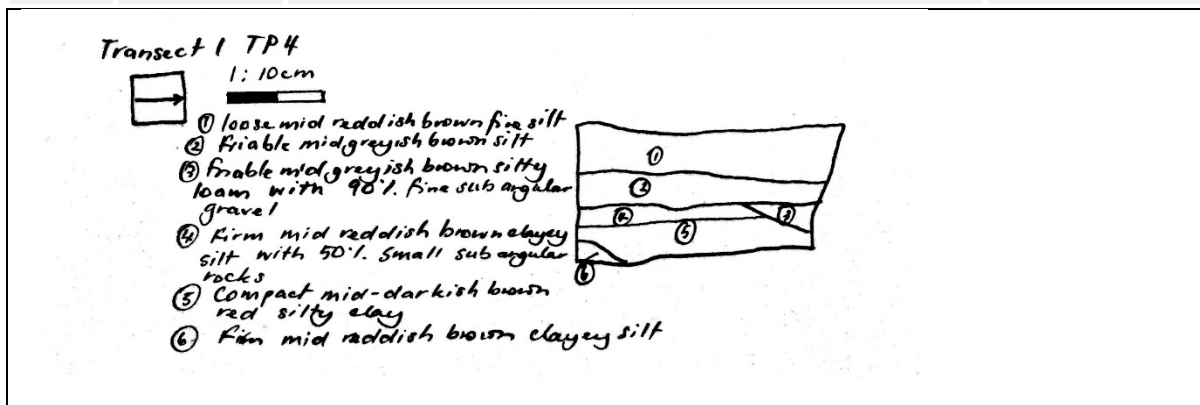 Transect 1 TP4
1:10cm
① loose mid reddish brown fine silt
② friable mid greyish brown silt
③ friable mid greyish brown silty
loam with 90%. fine sub angular
gravel
④ Firm mid reddish brown clayey
silt with 50%. small sub angular
rocks
⑤ Compact mid-darkish brown
red silty clay
⑥ Firm mid reddish brown clayey silt
①
②
④
③
⑤
⑥